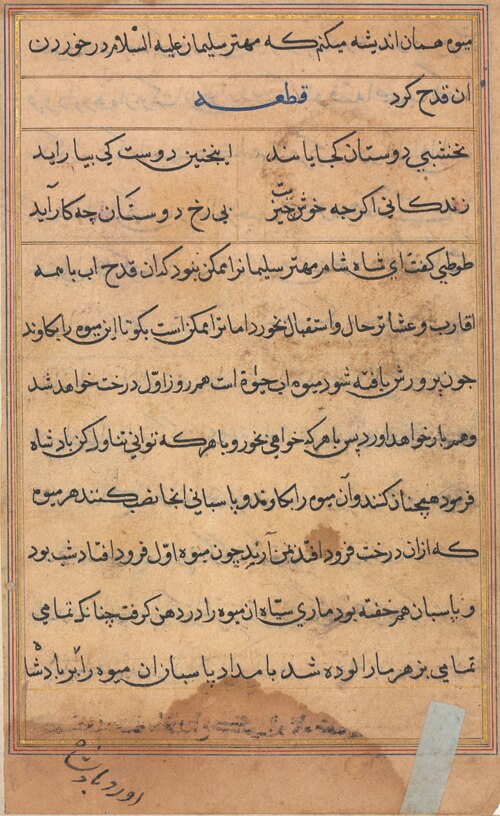 میوه همان اندیشه میکنم که مهتر سلیمان علیه السلام در خوردن
ان قدح کرد قطعه
نخشبی دوستان کجا یابند اینچنین دوست کی بیا راید
زندکانی اکرچه خوش چیزیست بی رخ دوستان چه کار آید
طوطی کفت ای شاه شاهر مهتر سلیمانرا ممکن نبود کدان قدح اب با همه
اقارب و عشایر حال و استقبال بخورد اما ترا ممکن است بکو تا این میوه را بکاوند
جون پرورش یافته شود میوه اب حیوة است همر روز اوّل درخت خواهد شد
وهم بار خواهد اورد پس با هر که خواهی بخور و با هر که توانی تناول کن بادشاه
فرمود همچنان کنند وآن میوه را بکاوند و پاسبانی انجا نصب کنند هر میوه
که ازان درخت فرود افتد بمن آرند چون میوه اوّل فرود افتاد شب بود
و پاسبان هم خفته بود ماری سیاه ان میوه را در دهن کرفت چنانکه تمامی
تمامی بزهر مار الوده شد بامداد پاسبان ان میوه را بر بادشاه
اورد بادشاه